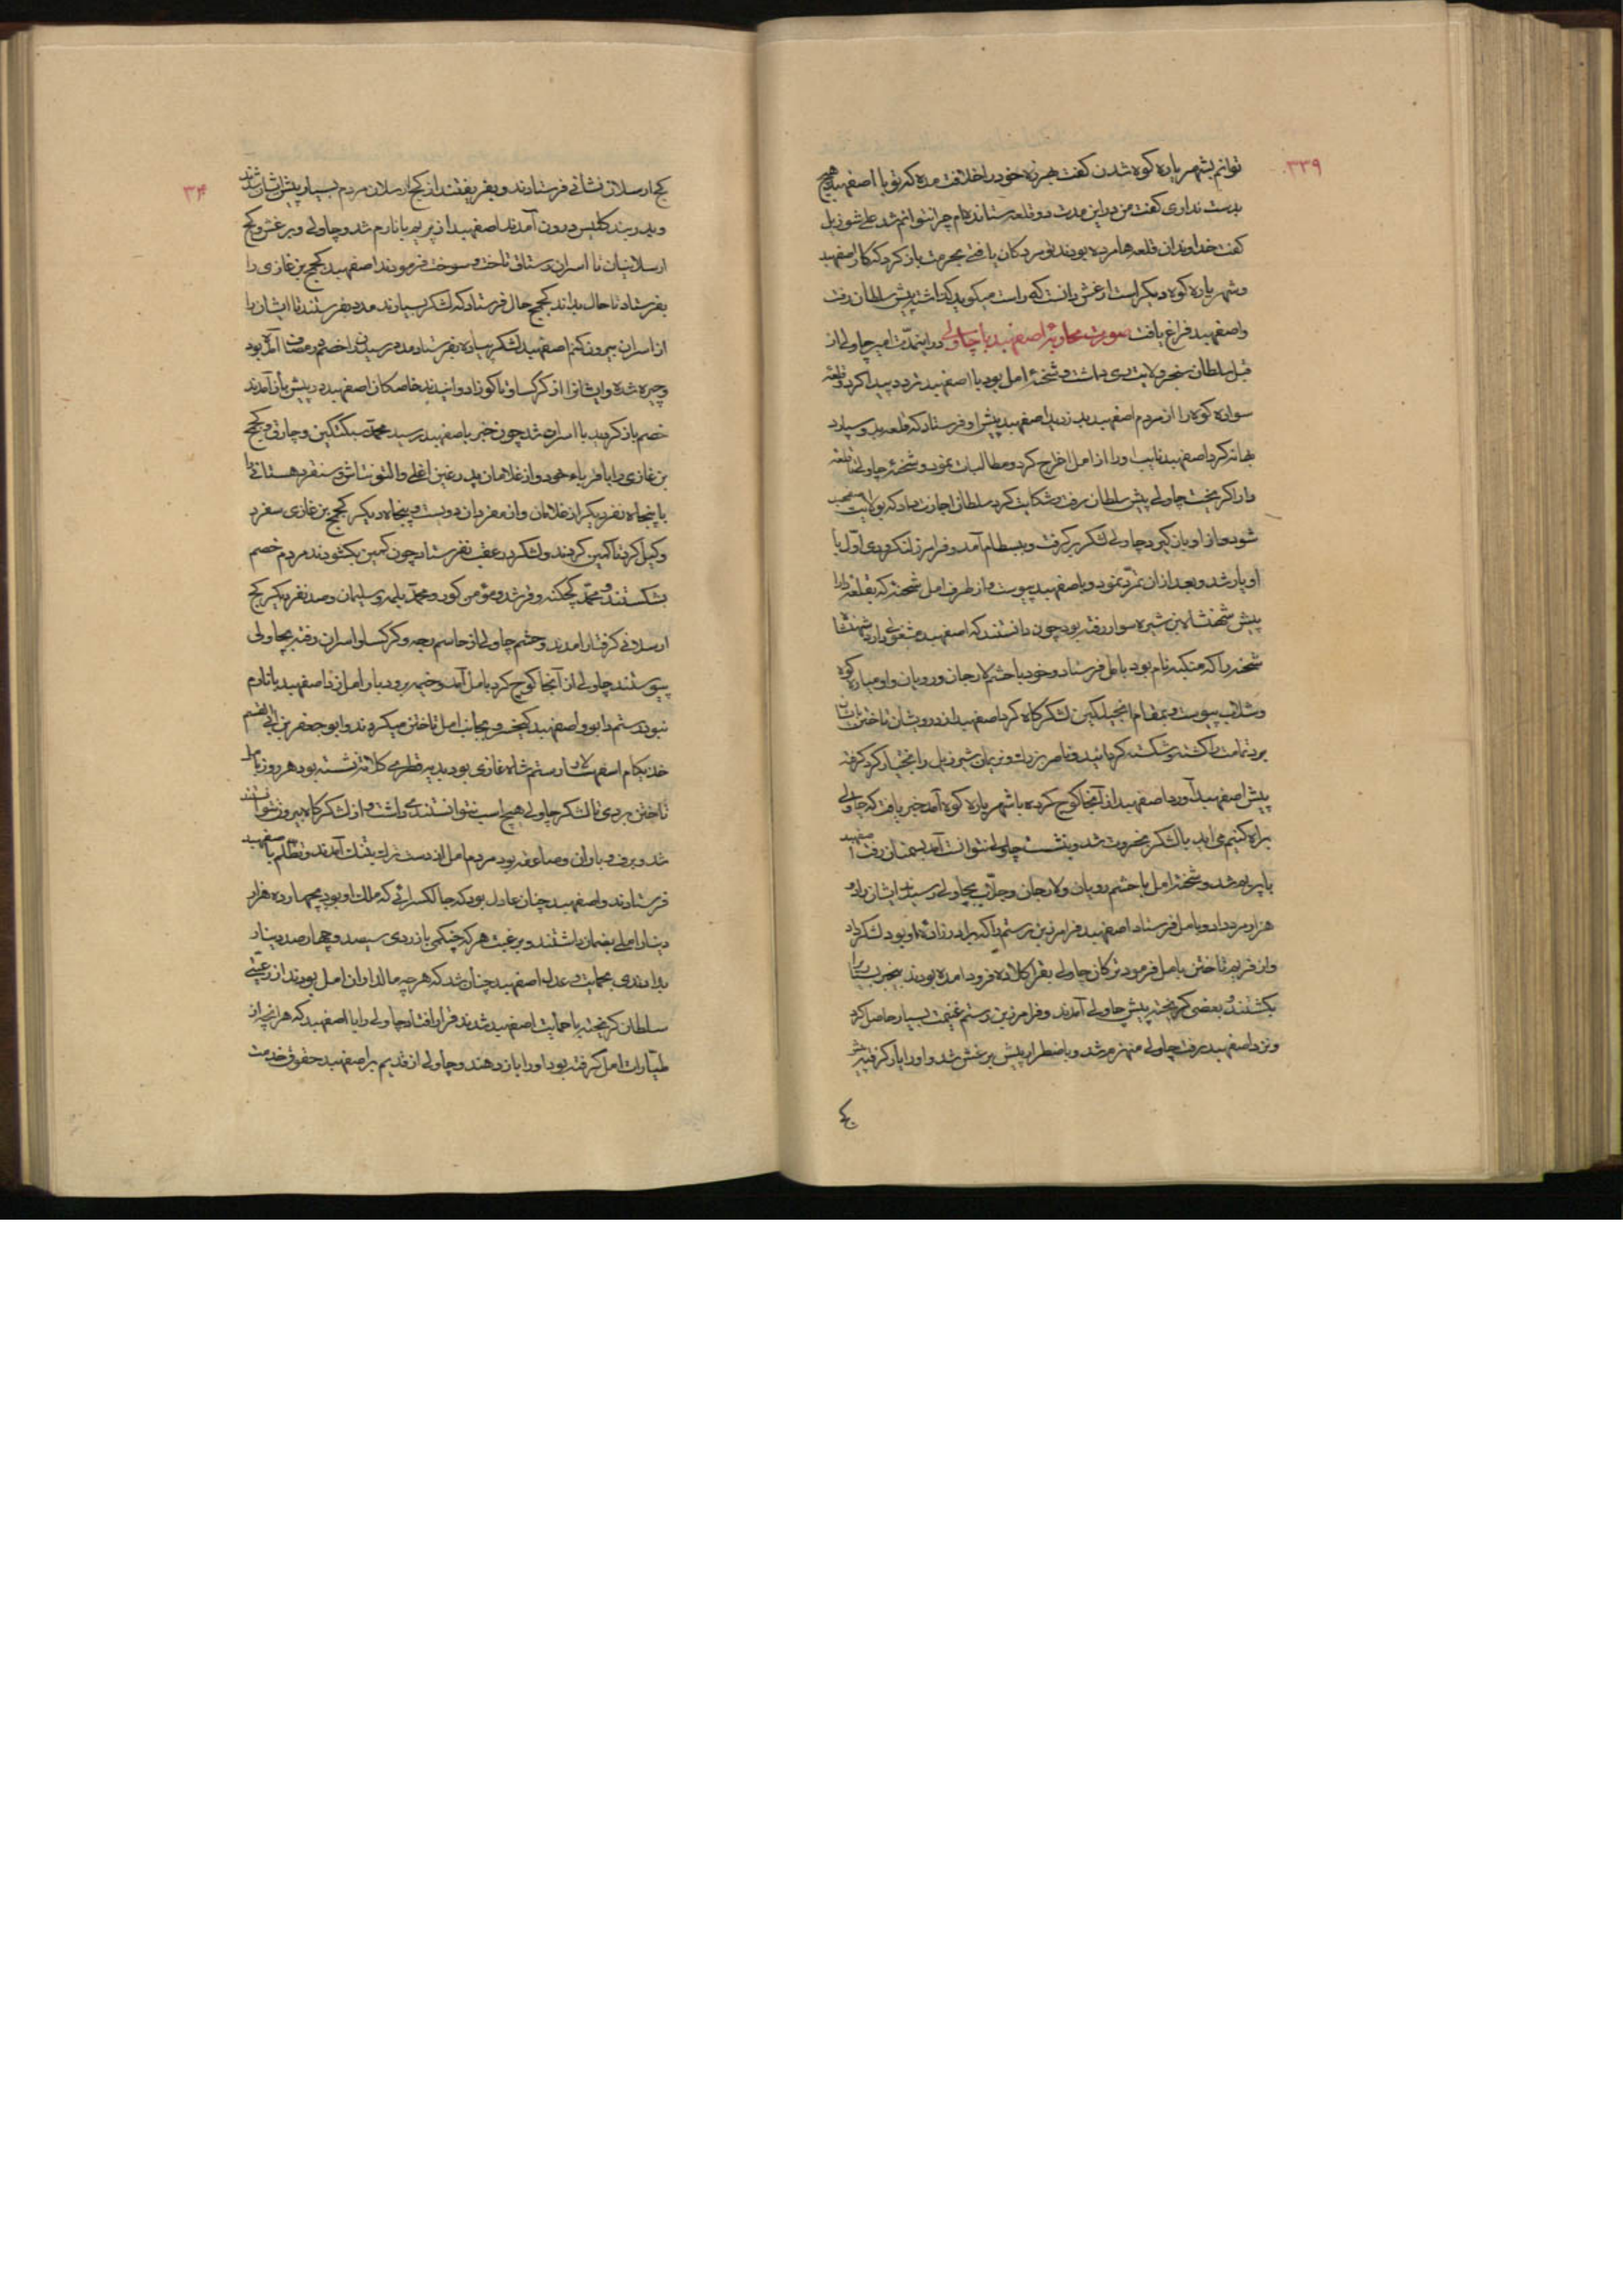 ۳۳۹
توانم بشهریاره کوه شدن گفت هرزه خود را خلافت مده که تو با اصفهبد هیچ
بدست نداری گفت من در این مدت دو قلعه ستانده‌ام چرا نتوانم شد علی شوزیل
گفت خداوندان قلعه‌ها مرده بودند تو مردکان یافتی بحرمت باز کرد که کار اصفهبد
و شهریاره کوه دیگر است ارغش دانست که راست میگوید بگذاشت پیش سلطان رفت
و اصفهبد فراغ یافت صورت محاربهٔ اصفهبد با چاولی در این مدت امیر چاولی از
قبل سلطان سنجر ولایت ری داشت و شحنهٔ امل بود با اصفهبد تردد پیدا کرد و قلعه
سواده کوه را از مردم اصفهبد بدزدید اصفهبد پیش او فرستاد که قلعه بدو سپارد
بهانه کرد اصفهبد نایب او را از امل اخراج کرد و مطالبات نمود و شحنهٔ چاولی با قلعه
دارا گریخت چاولی پیش سلطان رفت و شکایت کرد سلطان اجازت داد که بولایت اصفهبد
شود و از او باز گیرد چاولی لشکر برگرفت و ببسطام آمد و فرامرز لنکرودی اول با
او یار شد و بعد از آن تمرّد نمود و با اصفهبد پیوست و از طرف امل شحنه که بقلعه دارا
پیش شهنشاه بن شیره سوار رفته بود چون دانستند که اصفهبد مشغولی دارد شهنشاه
شحنه را که منکبه نام بود بامل فرستاد و خود با حشم لارجان و رویان و اومیاره کوه
و شلاب پیوست و بمقام انجیلکین لشکرگاه کرد اصفهبد از درویشان تاختن بایشان
برد تمامت را کشته و شکسته گردانید و ناصر یزدان و نریمان شیرزیل را بختیار کرد گرفته
پیش اصفهبد آورد اصفهبد از آنجا کوچ کرده با شهریاره کوه آمد خبر یافت که چاولی
براه کنیم می‌آید با لشکر بخروت شد و بنشست چاولی نتوانست آمد بسمنان رفت اصفهبد
با پریم شد و شحنهٔ امل با حشم رویان و لارجان و جلاب بچاولی رسیدند ایشان را دو
هزار مرد داد و بامل فرستاد اصفهبد فرامرز بن رستم را که برادرزادهٔ او بود لشکر داد
و از فریم تاختن بامل فرمود ترکان چاولی بقراکلاده فرود آمده بودند بیخبر بسیار را
بکشتند و بعضی گریخته پیش چاولی آمدند و فرامرز بن رستم غنیمت بسیار حاصل کرد
و نزد اصفهبد رفت چاولی منهزم شد و باضطرار پیش برغش شد و او را یار گرفته پیش
کج
۳۴۰
کج ارسلان نشانی فرستادند و بفریفتند از کج ارسلان مردم بسیار پیش ایشان شدند
و بدربند کلیس درون آمدند اصفهبد از پریم باتارم شد و چاولی و برغش و کج
ارسلانیان تا اسران رستاق تاخت و سوخت فرمودند اصفهبد کجج بن غازی را
بفرستاد تا حال بداند کجج حال فرستاد که لشکر بسیارند مدد بفرستند تا ایشان را
از اسران بیرون کنم اصفهبد لشکر پیاده بفرستاد مدد رسیدن را خصم در مصاف آمده بود
و چیره شده و ایشان را از کرکساو تا کوزا دوانیدند خاصکان اصفهبد در پیش باز آمدند
خصم باز گردید با اسران شد چون خبر باصفهبد رسید محمد سبکتکین و چارتی و کجج
بن غازی را با قرباء خود و از غلامان پدر غین اغلی و التونتاش و سنقر دهستانی را
با پنجاه نفر دیگر از غلامان و از مفردان دویست و پنجاه دیگر کجج بن غازی سفرد
وکیل کرد تا کمین کردند و لشکر در عقب بفرستاد چون کمین بگشودند مردم خصم
بشکستند و محمد کجکنه و فرشد و مؤمن کور و محمد یلمه و سلیمان و صد نفر دیگر کج
ارسلانی گرفتار آمدند و حشم چاولی از جاسم رجه و کرکسلو اسران رفته بچاولی
پیوستند چاولی از آنجا کوچ کرد بامل آمد و خیمه برودبار امل زد اصفهبد باتارم
نبود رستم دابو و اصفهبد کیخسرو بجانب امل تاختن میکردند و ابو جعفر بن ابی القسم
خدیکام اسفهسالار رستم شاه غازی بود بدیه قطرمی کلاته نشسته بود هر روز بامل
تاختن بردی تا لشکر چاولی هیچ اسب نتوانستندی داشت و از لشکرگاه بیرون نتوانستند
شد و برف و باران و صاعقه بود مردم امل از دست ترک بتنگ آمدند و تظلم باصفهبد
فرستادند و اصفهبد چنان عادل بود که جالکسرائی که ملک او بود بچهار ده هزار
دینار املی بضمان داشتند و برغبت هر که خنکی بازردی سیصد و چهارصد دینار
بدادندی بحمایت و عدل اصفهبد چنان شد که هر چه مالداران امل بودند از رعیتی
سلطان گریخته با حمایت اصفهبد شدند قرار افتاد چاولی را با اصفهبد که هر آنچه از
لمتارات امل گرفته بود او را باز دهند و چاولی از قدیم بر اصفهبد حقوق خدمت